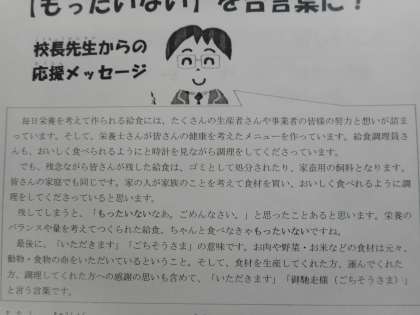 【もったいない】を合言葉に！
校長先生からの
応援メッセージ
毎日栄養を考えて作られる給食には、たくさんの生産者さんや事業者の皆様の努力と想いが詰ま
っています。そして、栄養士さんが皆さんの健康を考えたメニューを作っています。給食調理員さ
んも、おいしく食べられるようにと時計を見ながら調理をしてくださっています。
でも、残念ながら皆さんが残した給食は、ゴミとして処分されたり、家畜用の飼料となります。
皆さんの家庭でも同じです。家の人が家族のことを考えて食材を買い、おいしく食べれるように調
理をしてくださっていると思います。
残してしまうと、「もったいないなあ。ごめんなさい。」と思ったことあると思います。栄養の
バランスや量を考えてつくられた給食、ちゃんと食べなきゃもったいないですね。
最後に、「いただきます」「ごちそうさま」の意味です。お肉や野菜・お米などの食材は元々、
動物・食物の命をいただいているということ。そして、食材を生産してくれた方、運んでくれた
方、調理してくれた方への感謝の思いも含めて、「いただきます」「御馳走様（ごちそうさま）」
と言う言葉です。